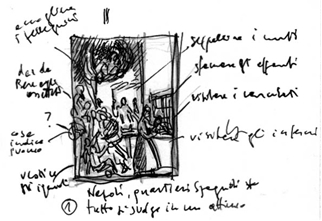 II
accogliere
i pellegrini
dar da
bere agli
assetati
?
cosa
indica
l'uomo
vestire
gli ignudi
seppellire i morti
sfamare gli affamati
visitare i carcerati
visitare gli infermi
① Napoli, quartieri spagnoli
tutto si svolge in un attimo